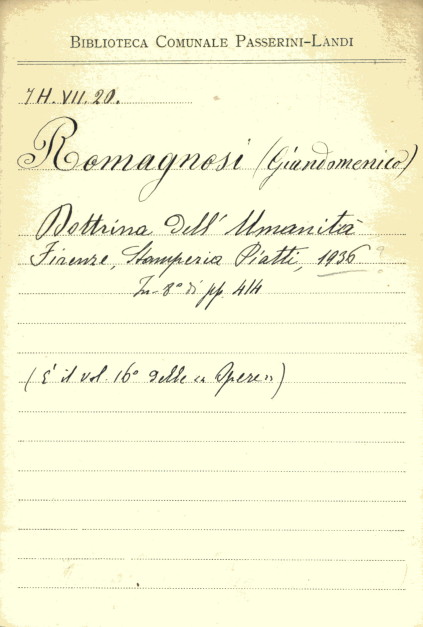 BIBLIOTECA COMUNALE PASSERINI-LANDI
7H. VII. 20.
Romagnosi (Giandomenico)
Dottrina dell' Umanità
Firenze, Stamperia Piatti, 1936 ?
In-8° di pp. 414
(È il vol. 16° delle «Opere»)